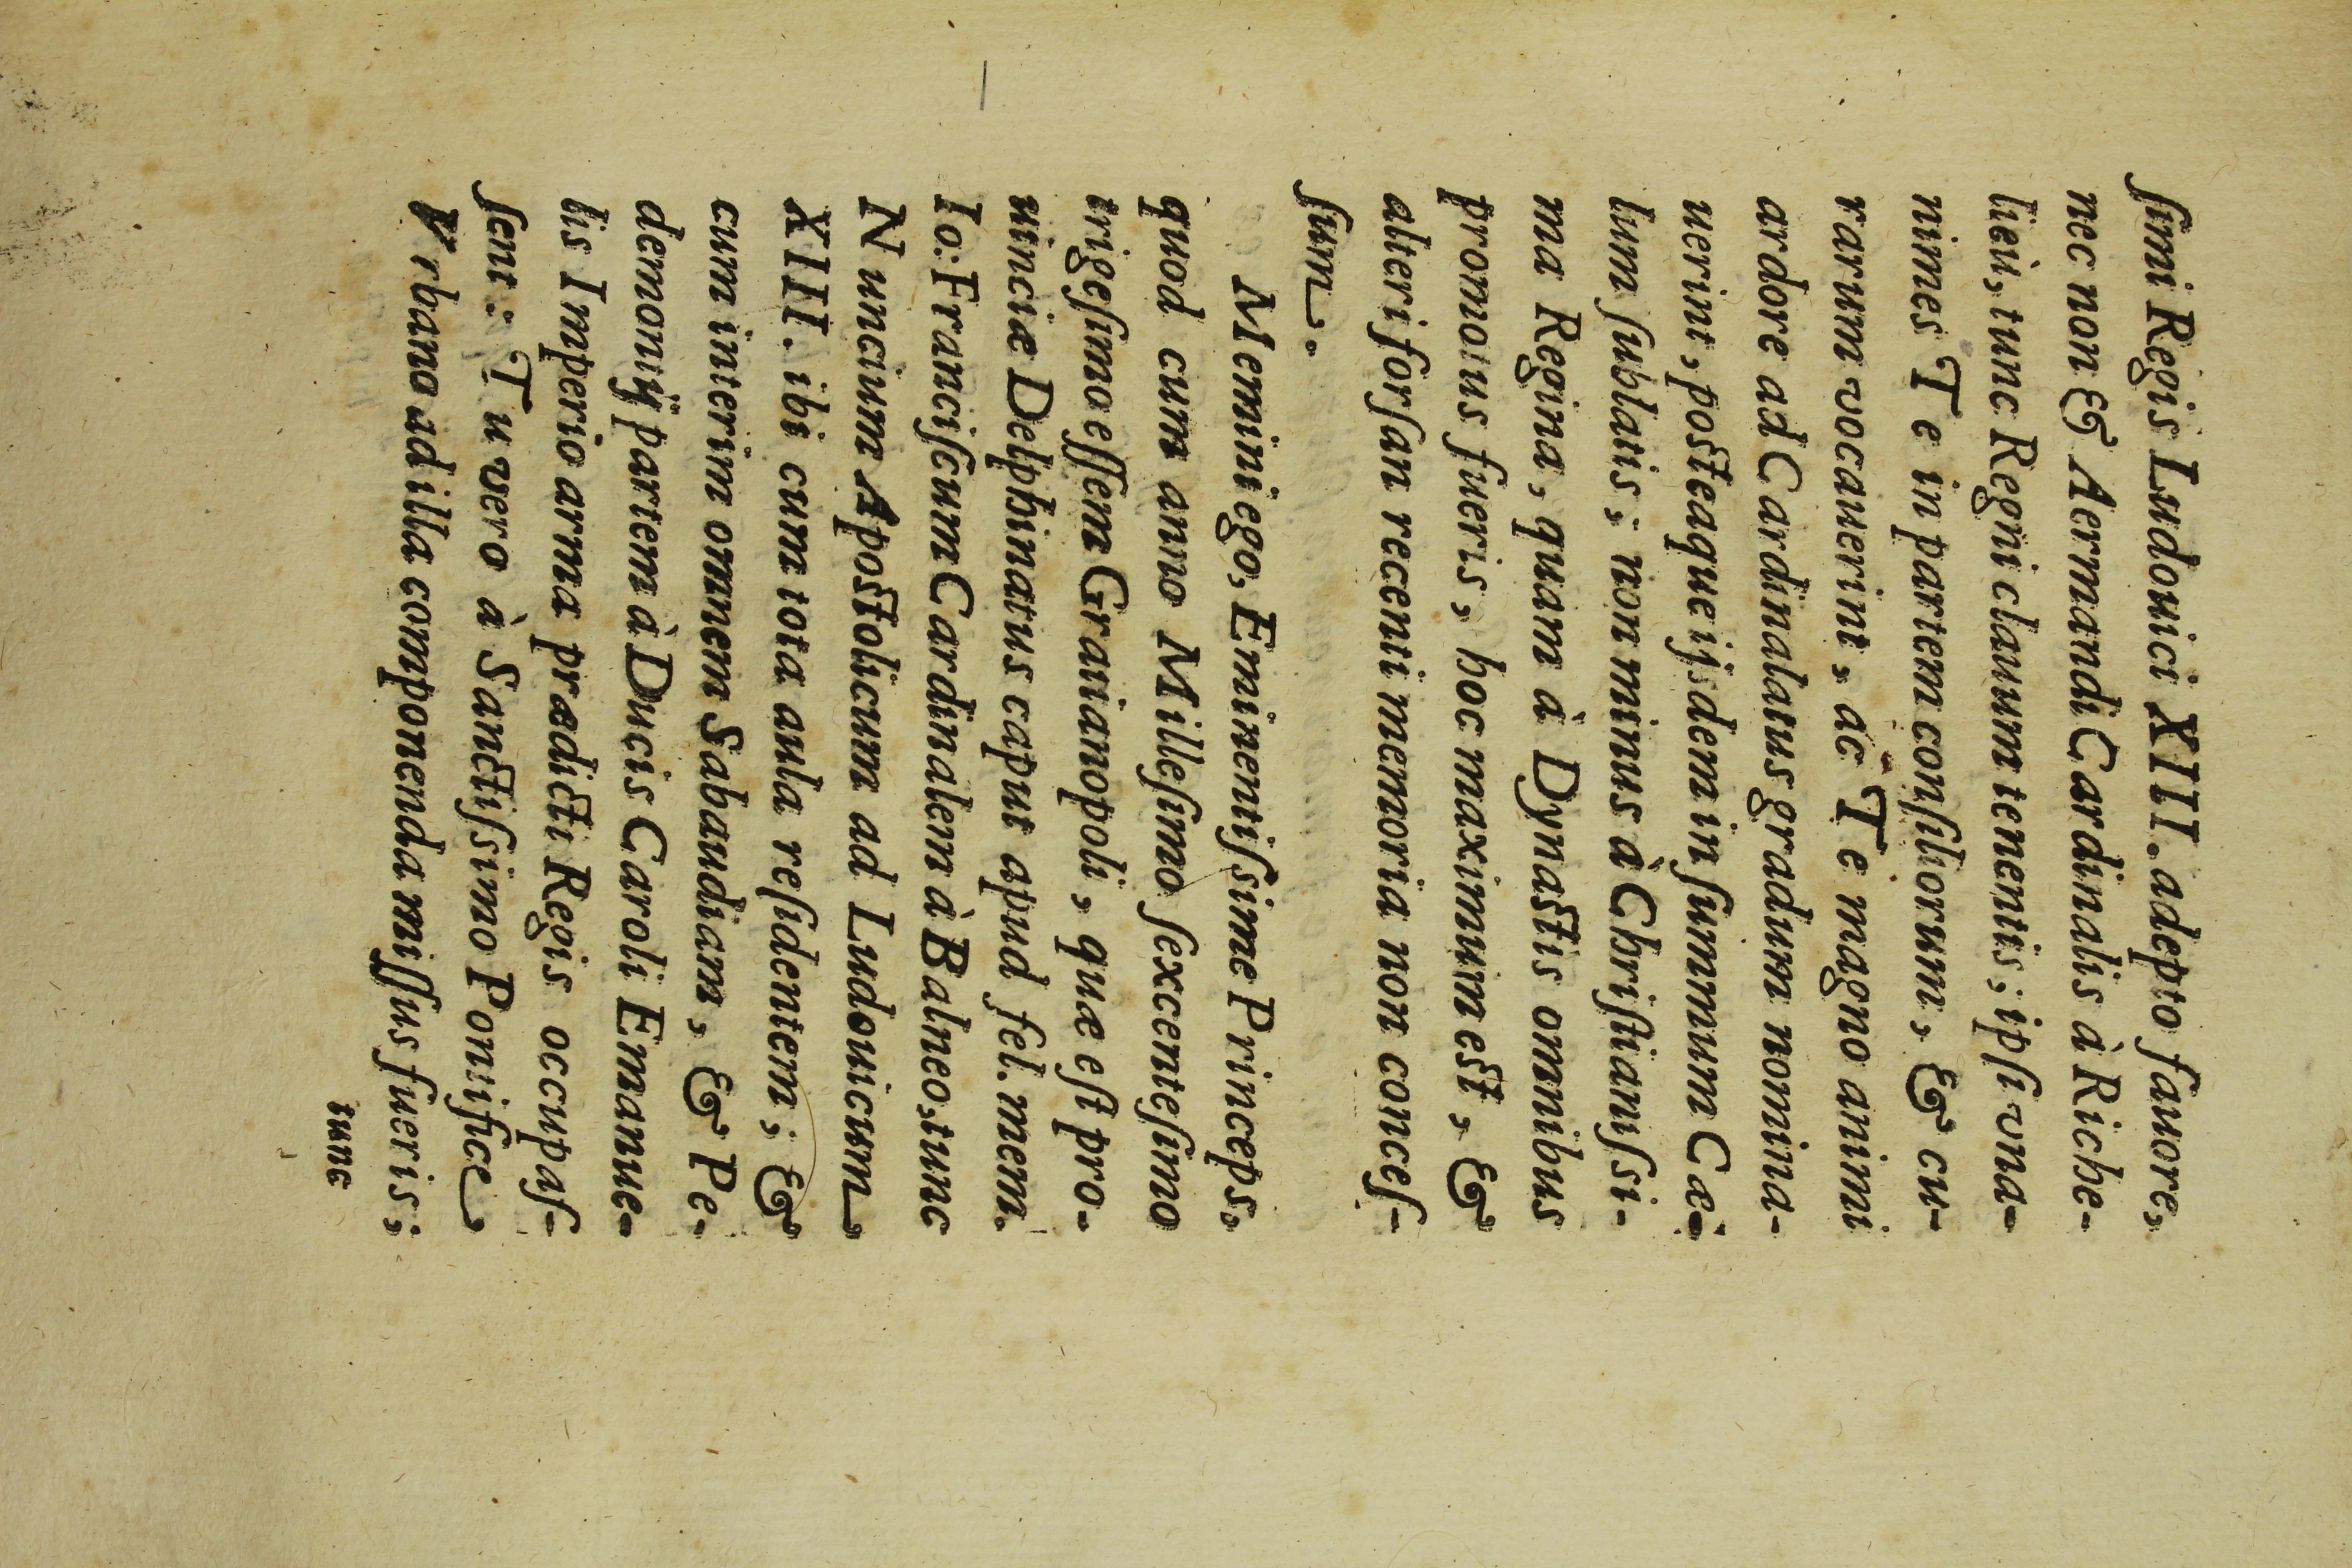 ſimi Regis Ludouici XIII. adepto fauore,
nec non & Aermandi Cardinalis à Riche-
lieù, tunc Regni clauum tenentis; ipſi vna-
nimes Te in partem conſiliorum, & cu-
rarum vocauerint, ac Te magno animi
ardore ad Cardinalatus gradum nomina-
uerint, poſteaque ijsdem in ſummum Cæ-
lum ſublatis; non minus à Chriſtianiſsi-
ma Regina, quam à Dynaſtis omnibus
promotus fueris, hoc maximum eſt, &
alteri forſan recenti memoria non conceſ-
ſum.
Memini ego, Eminentiſsime Princeps,
quod cum anno Milleſimo ſexcenteſimo
trigeſimo eſſem Gratianopoli, quæ eſt pro-
uinciæ Delphinatus caput apud fel. mem.
Io: Franciſcum Cardinalem à Balneo, tunc
Nuncium Apoſtolicum ad Ludouicum
XIII. ibi cum tota aula reſidentem; &
cum interim omnem Sabaudiam, & Pe-
demontij partem à Ducis Caroli Emanue-
lis Imperio arma prædicti Regis occupaſ-
ſent: Tu vero à Sanctiſsimo Pontifice
Vrbano ad illa componenda miſſus fueris;
tunc